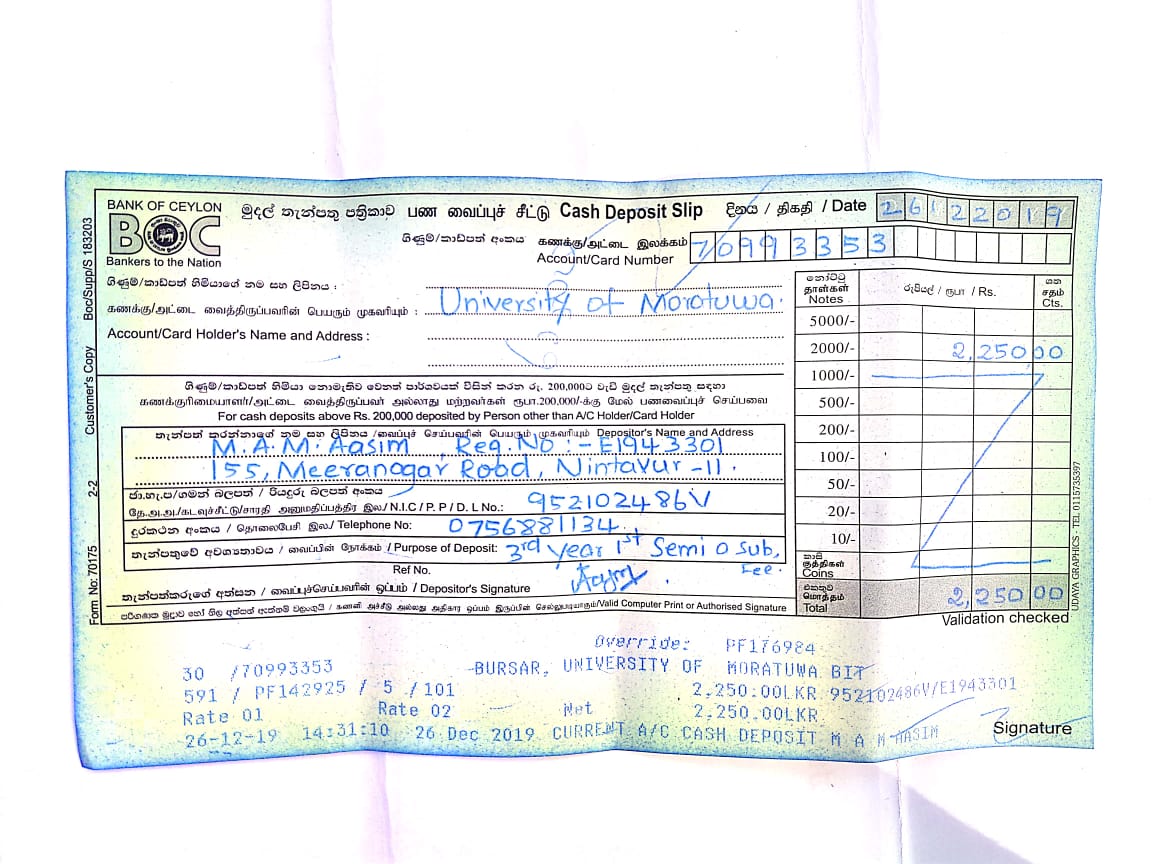 BANK OF CEYLON
BOC
Bankers to the Nation
මුදල් තැන්පතු පත්‍රිකාව பண வைப்புச் சீட்டு Cash Deposit Slip
දිනය / திகதி / Date 26122019
ගිණුම්/කාඩ්පත් අංකය கணக்கு/அட்டை இலக்கம்
Account/Card Number 70993353
ගිණුම්/කාඩ්පත් හිමියාගේ නම සහ ලිපිනය :
கணக்கு/அட்டை வைத்திருப்பவரின் பெயரும் முகவரியும் : University of Morotuwa.
Account/Card Holder's Name and Address :
ගිණුම්/කාඩ්පත් හිමියා නොමැතිව වෙනත් පාර්ශවයක් විසින් කරන රු. 200,000ට වැඩි මුදල් තැන්පතු සඳහා
கணக்குரிமையாளர்/அட்டை வைத்திருப்பவர் அல்லாது மற்றவர்கள் ரூபா.200,000/-க்கு மேல் பணவைப்புச் செய்பவை
For cash deposits above Rs. 200,000 deposited by Person other than A/C Holder/Card Holder
තැන්පත් කරන්නාගේ නම සහ ලිපිනය /வைப்புச் செய்பவரின் பெயரும் முகவரியும் Depositor's Name and Address
M.A.M. Aasim , Reg.No :- E1943301
155, Meeranagar Road, Nintavur -11.
ජා.හැ.ප/ගමන් බලපත් / රියදුරු බලපත් අංකය
தே.அ.அ./கடவுச்சீட்டு/சாரதி அனுமதிப்பத்திர இல./N.I.C / P. P / D. L No.: 952102486V
දුරකථන අංකය / தொலைபேசி இல./ Telephone No: 0756881134
තැන්පතුවේ අවශ්‍යතාවය / வைப்பின் நோக்கம் / Purpose of Deposit: 3rd Year 1st Semi 0 Sub,
Fee.
Ref No.
තැන්පත්කරුගේ අත්සන / வைப்புச்செய்பவரின் ஒப்பம் / Depositor's Signature
පරිගණක මුද්‍රාව හෝ බලයලත් අත්සන ඇත්නම් වලංගුයි / கணனி அச்சீடு அல்லது அதிகார ஒப்பம் இருப்பின் செல்லுபடியாகும்/Valid Computer Print or Authorised Signature
නෝට්ටු
தாள்கள்
Notes
රුපියල් / ரூபா / Rs.
ශත
சதம்
Cts.
5000/-
2000/- 2,250 00
1000/-
500/-
200/-
100/-
50/-
20/-
10/-
කාසි
குத்திகள்
Coins
එකතුව
மொத்தம்
Total 2,250 00
Validation checked
Form No: 70175 2-2 Customer's Copy Boc/Supp/S 183203
UDAYA GRAPHICS - TEL 0115735397
Override: PF176984
30 /70993353 -BURSAR, UNIVERSITY OF MORATUWA BIT
591 / PF142925 / 5 /101 2,250.00LKR 952102486V/E1943301
Rate 01 Rate 02 Net 2,250.00LKR
26-12-19 14:31:10 26 Dec 2019 CURRENT A/C CASH DEPOSIT M A M AASIM
Signature